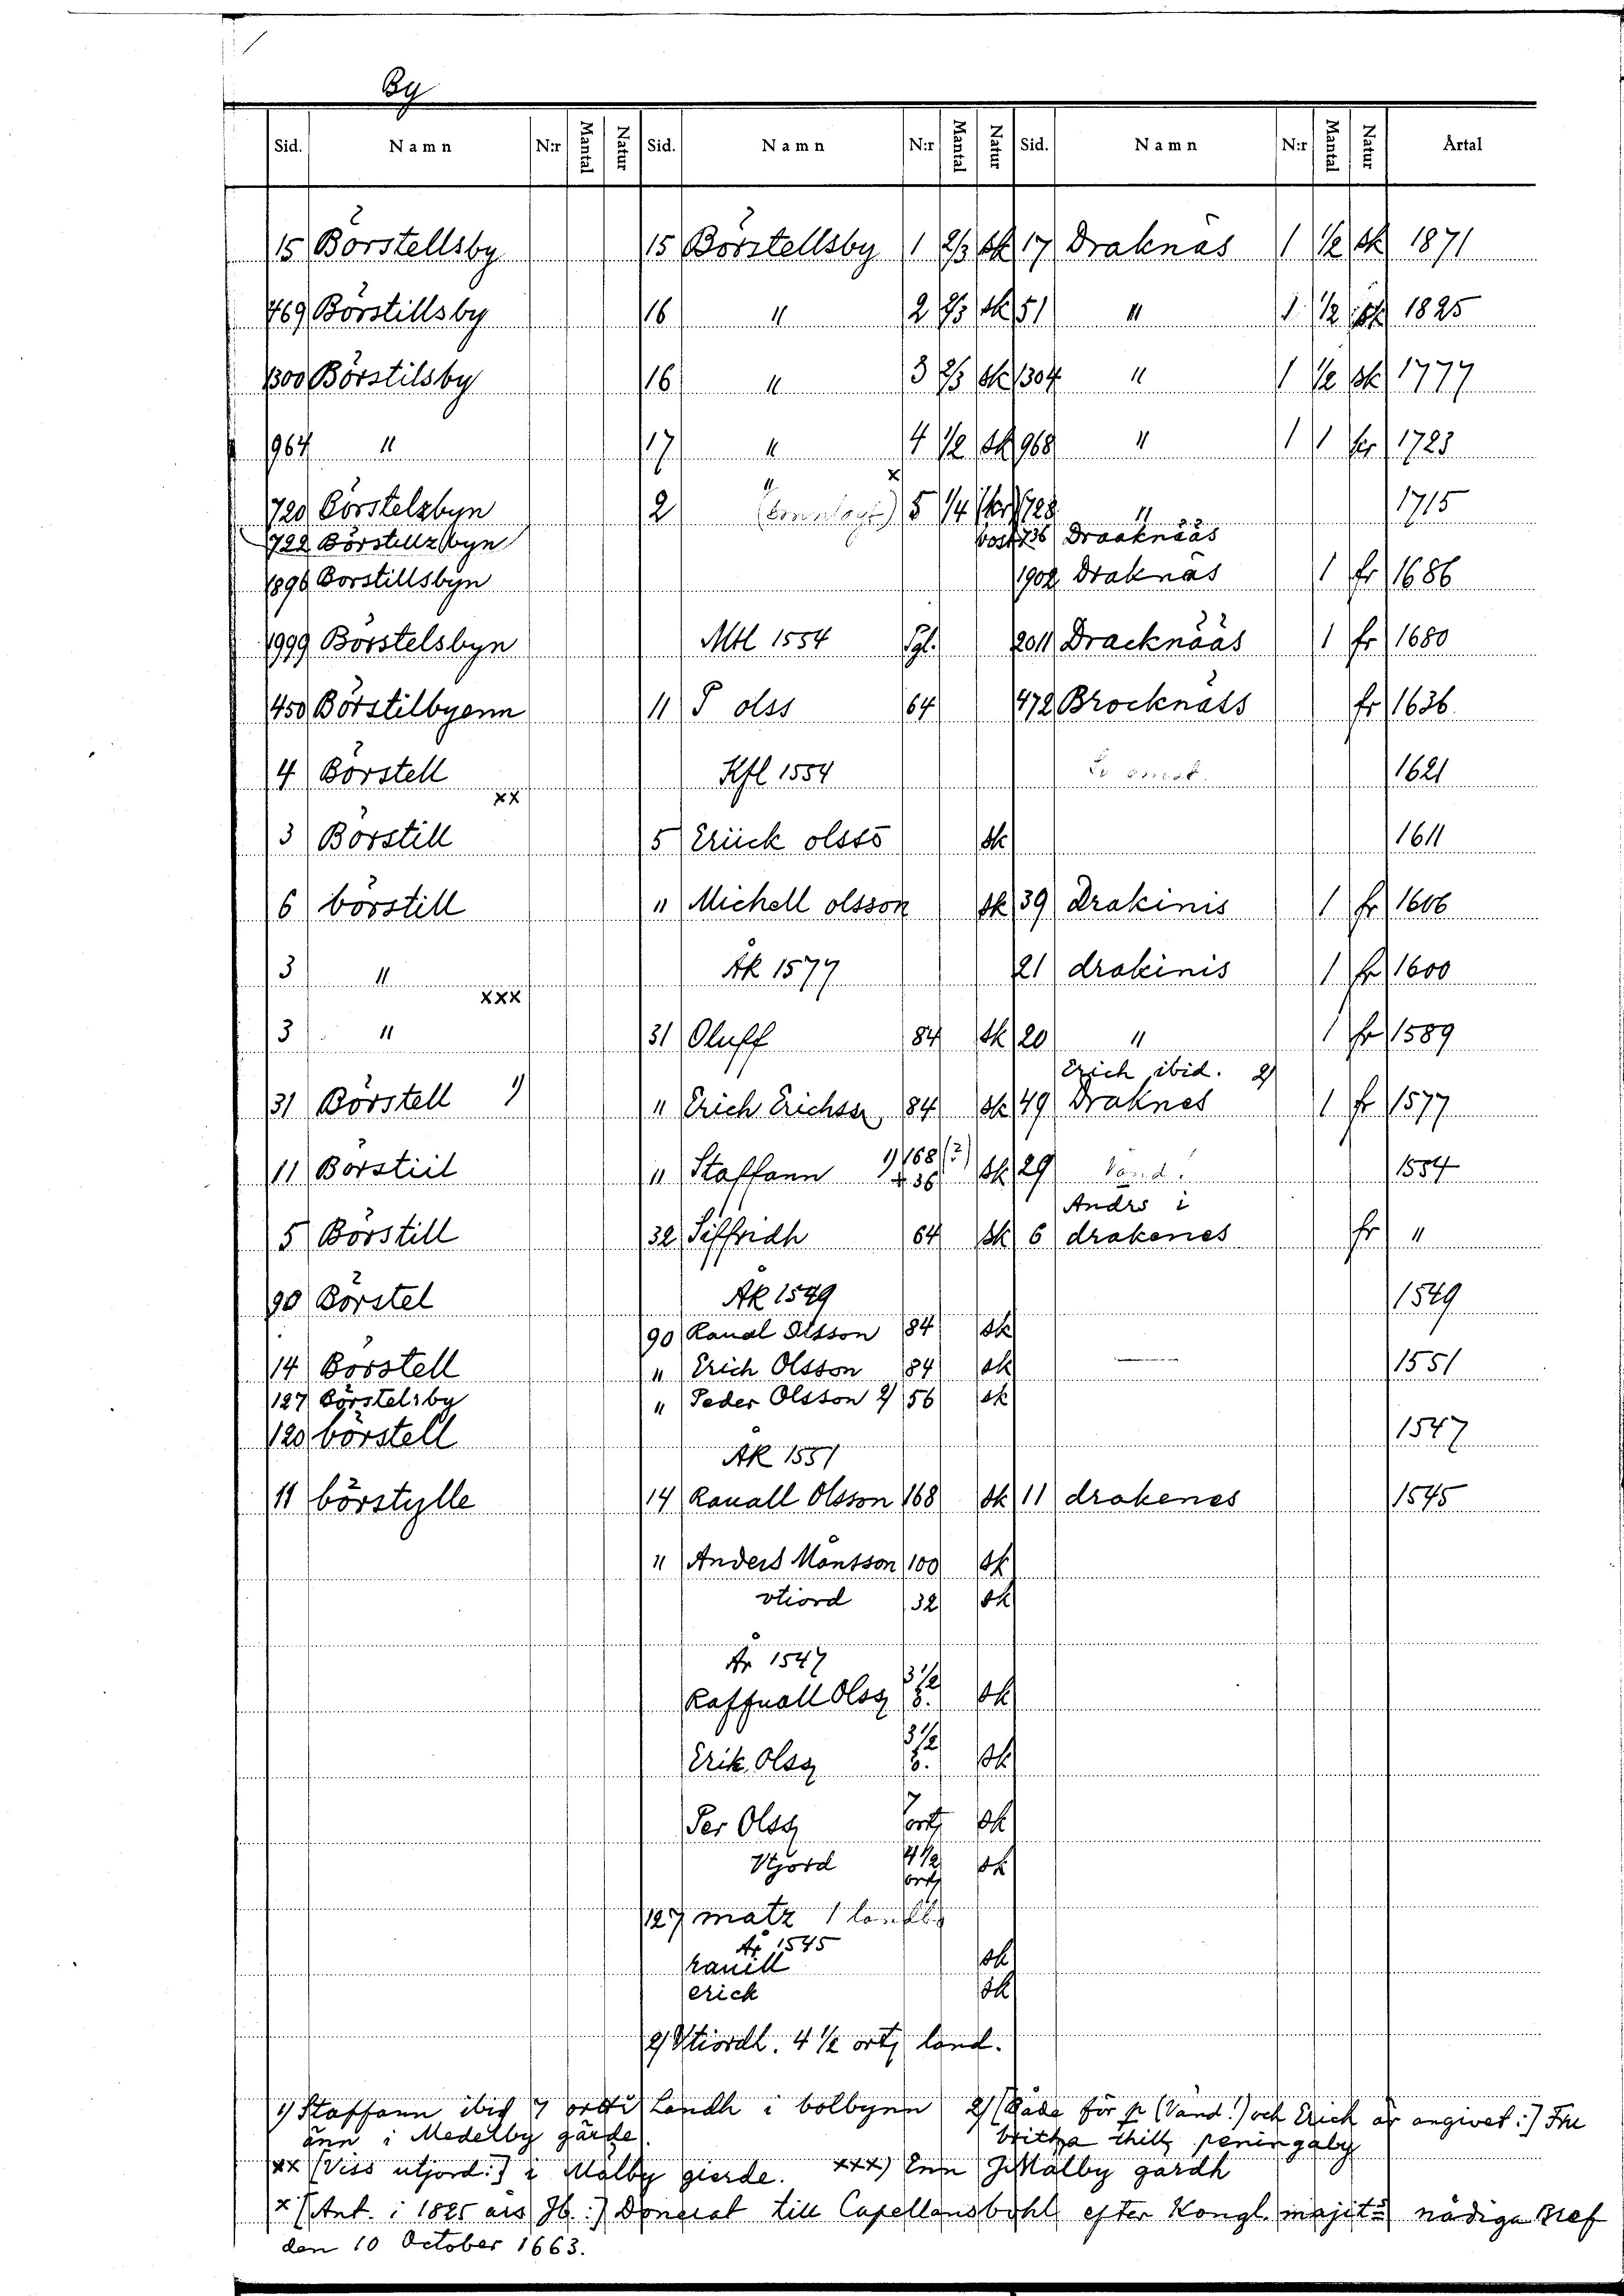 By
Sid. Namn N:r Mantal Natur Sid. Namn N:r Mantal Natur Sid. Namn N:r Mantal Natur Årtal
15 Börstellsby 15 Börstellsby 1 2/3 sk 17 Draknäs 1 1/2 sk 1871
769 Börstillsby 16 " 2 2/3 sk 51 " 1 1/2 sk 1825
1300 Börstilsby 16 " 3 2/3 sk 1304 " 1 1/2 sk 1777
964 " 17 " 4 1/2 sk 968 " 1 1 kr 1723
720 Börstelzbyn 2 " 5 x 1/4 kr 728 " 1715
722 Börstellzbyn 736 Draaknääs
1896 Borstillsbyn 1902 Draknäs 1 fr 1686
1999 Börstelsbyn Mtl 1554 Pgl. 2011 Dracknääs 1 fr 1680
450 Börstilbyenn 11 P olss 64 472 Brocknäss fr 1636
4 Börstell Kfl 1554 1621
xx
3 Börstill 5 Erück olssö sk 1611
6 börstill " Michell olsson sk 39 Drakinis 1 fr 1606
3 " ÅK 1577 21 drakinis 1 fr 1600
xxx
3 " 31 Oluff 84 sk 20 " 1 fr 1589
Erich ibid. 2)
31 Börstell 1) " Erich Erichss 84 sk 49 Draknes 1 fr 1577
11 Börstiil " Staffann 1) 168 (?) + 36 sk 29 Vänd! 1554
Andrs i
5 Börstill 32 Siffridh 64 sk 6 drakenes fr "
90 Börstel ÅK 1549 1549
90 Rauał Olsson 84 sk
14 Borstell " Erich Olsson 84 sk — 1551
127 Börstelsby " Peder Olsson 2) 56 sk
120 börstell 1547
ÅK 1551
11 börstylle 14 Rauall Olsson 168 sk 11 drakenes 1545
" Anders Månsson 100 sk
vtiord 32 sk
År 1547
Raffuall Olss 3 1/2 ö. sk
Erik Olss 3 1/2 ö. sk
Per Olss 7 ort sk
Vtjord 4 1/2 ort sk
127 matz 1 landbo
År 1545
rauill sk
erich sk
2) Vtiordh. 4 1/2 ort land.
1) Staffann ibid 7 Landh i bolbynn 2) [Både för fr (Vänd!) och Erich är angivet:] Fru
änn i Medelby gärde. britha thill peningaby
xx [Viss utjord:] i Målby gierde. xxx) Enn J Malby gardh
x [Ant. i 1825 års Jb.:] Donerat till Capellansbohl efter Kongl. majits nådiga Bref
den 10 October 1663.